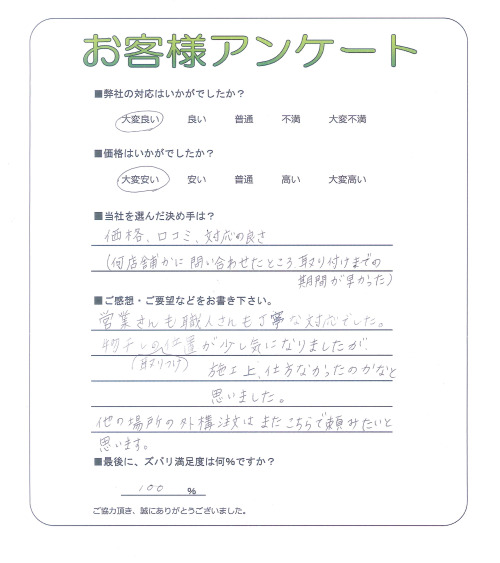 お客様アンケート
■弊社の対応はいかがでしたか？
大変良い 良い 普通 不満 大変不満
■価格はいかがでしたか？
大変安い 安い 普通 高い 大変高い
■当社を選んだ決め手は？
価格、口コミ、対応の良さ
(何店舗かに問い合わせたところ取り付けまでの
期間が早かった)
■ご感想・ご要望などをお書き下さい。
営業さんも職人さんも丁寧な対応でした。
物干しの位置が少し気になりましたが
(取りつけ) 施工上、仕方なかったのかなと
思いました。
他の場所の外構注文はまたこちらで頼みたいと
思います。
■最後に、ズバリ満足度は何%ですか？
100 %
ご協力頂き、誠にありがとうございました。